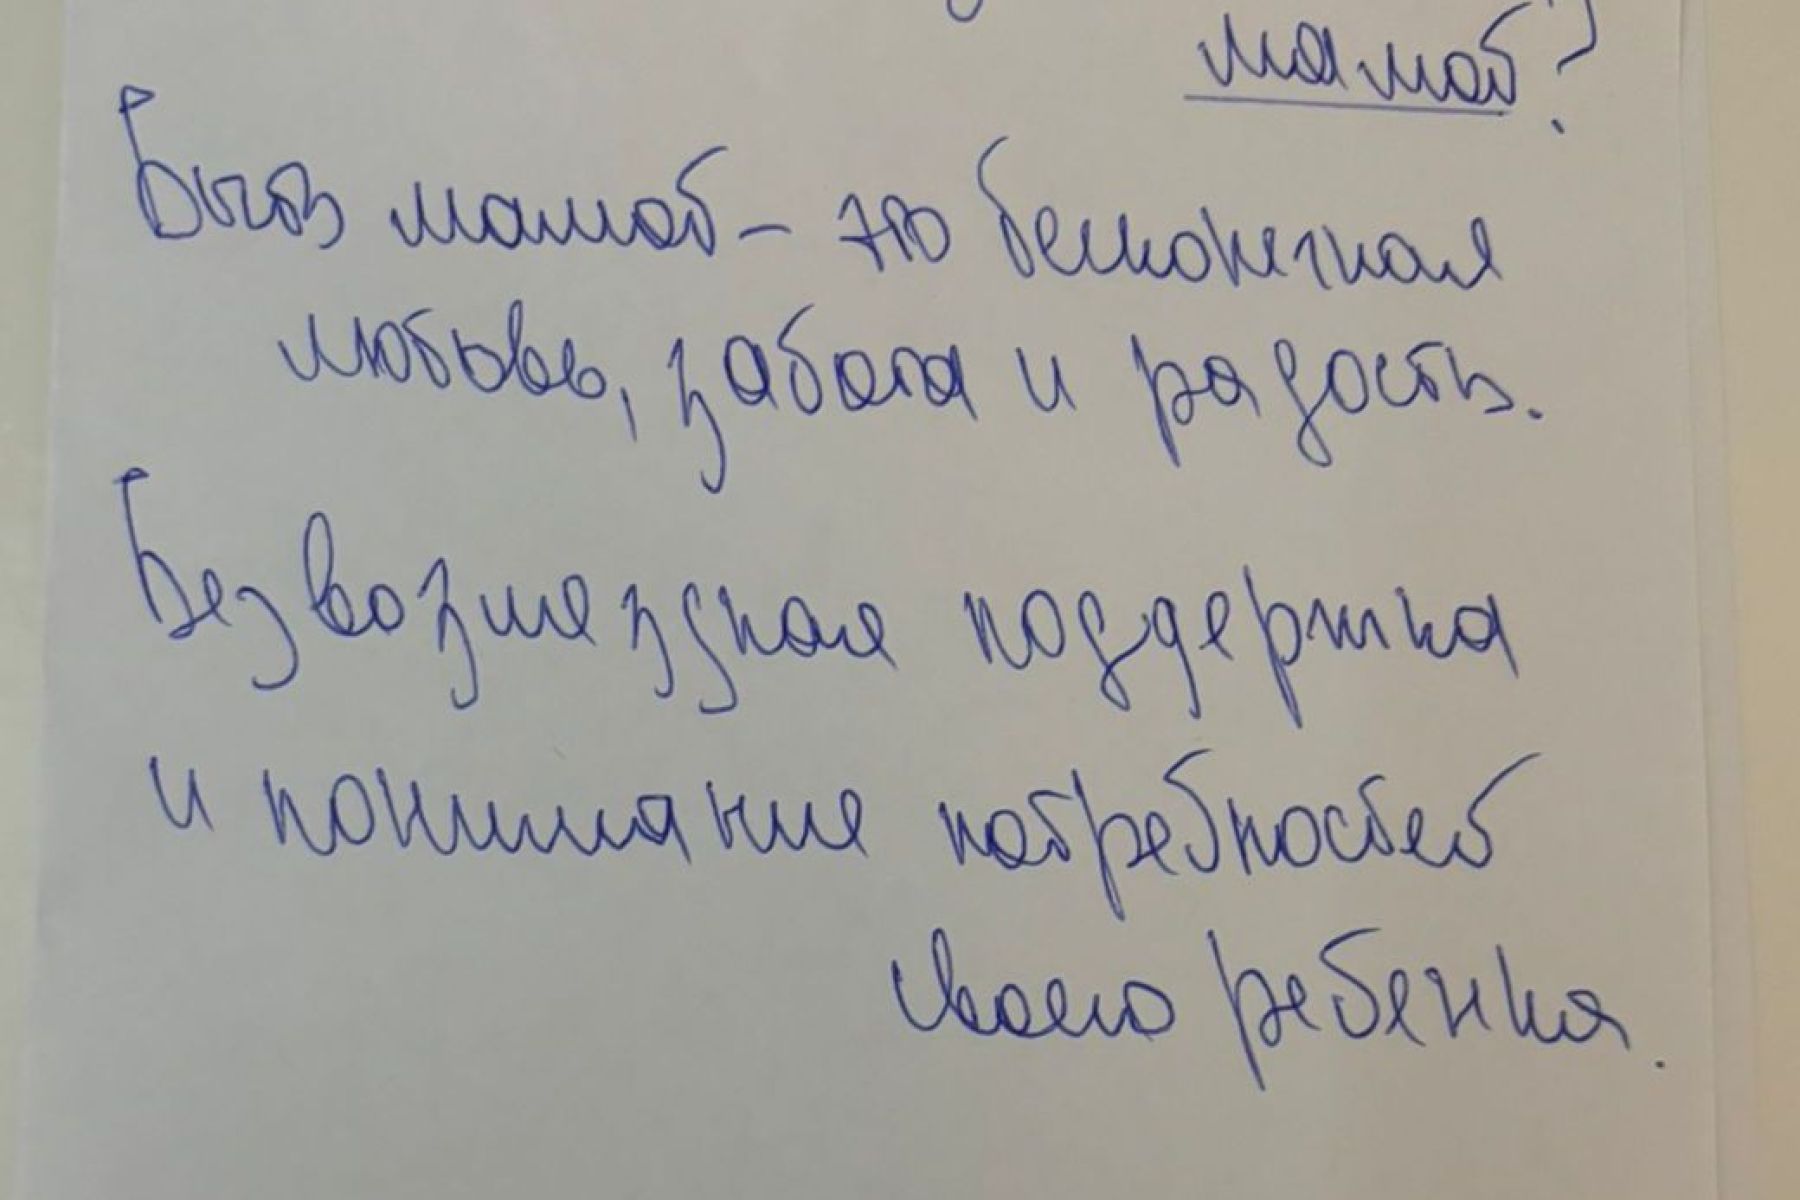 мамой?
Быть мамой - это бесконечная
любовь, забота и радость.
Безвозмездная поддержка
и понимание потребностей
своего ребенка.